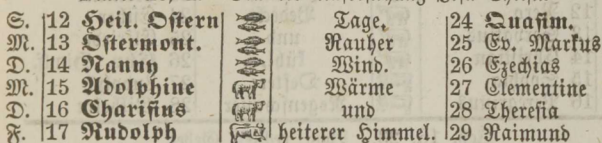 S. 12 Heil. Ostern Tage, 24 Quasim.
M. 13 Ostermont. Rauher 25 Ev. Markus
D. 14 Nanny Wind. 26 Ezechias
M. 15 Adolphine Wärme 27 Clementine
D. 16 Charisius und 28 Theresia
F. 17 Rudolph heiterer Himmel. 29 Raimund